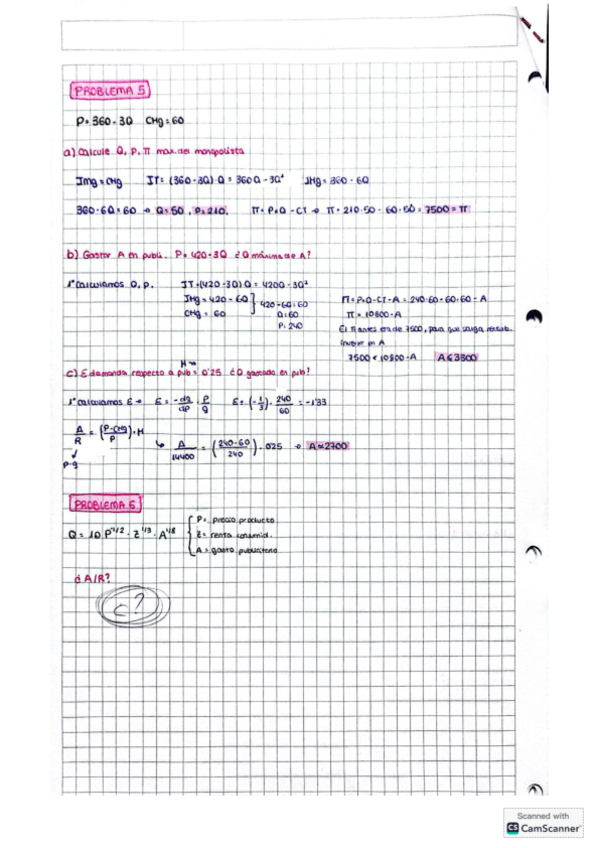 PROBLEMA 5
P = 360 - 3Q   CMg = 60
a) Calcule Q, P, Π max. del monopolista
IMg = CMg   IT = (360 - 3Q) · Q = 360Q - 3Q²   IMg = 360 - 6Q
360 - 6Q = 60 → Q = 50, P = 210.   Π = P·Q - CT → Π = 210·50 - 60·50 = 7500 = Π
b) Gastar A en publi. P = 420 - 3Q ¿Q máxima de A?
1º Calculamos Q, p.   IT = (420 - 3Q) Q = 420Q - 3Q²
IMg = 420 - 6Q
CMg = 60
420 - 6Q = 60
Q = 60
P = 240
Π = P·Q - CT - A = 240·60 - 60·60 - A
Π = 10800 - A
El Π antes era de 7500, para que salga
invertir en A
7500 < 10800 - A   A ≤ 3300
M
c) E demanda respecto a pub = 0'25 ¿Q gastada en pub?
1º calculamos E → E = -dq/dp · P/q   E = (-1/3) · 240/60 = -1'33
A/R = (P - CMg / P) · M
p·q
↳ A/14400 = (240 - 60 / 240) · 0'25 → A = 2700
PROBLEMA 6
Q = 10 P^-1/2 · Z^1/3 · A^1/8
P = precio producto
Z = renta consumid.
A = gasto publicitario
¿A/R?
¿?
Scanned with
CS CamScanner